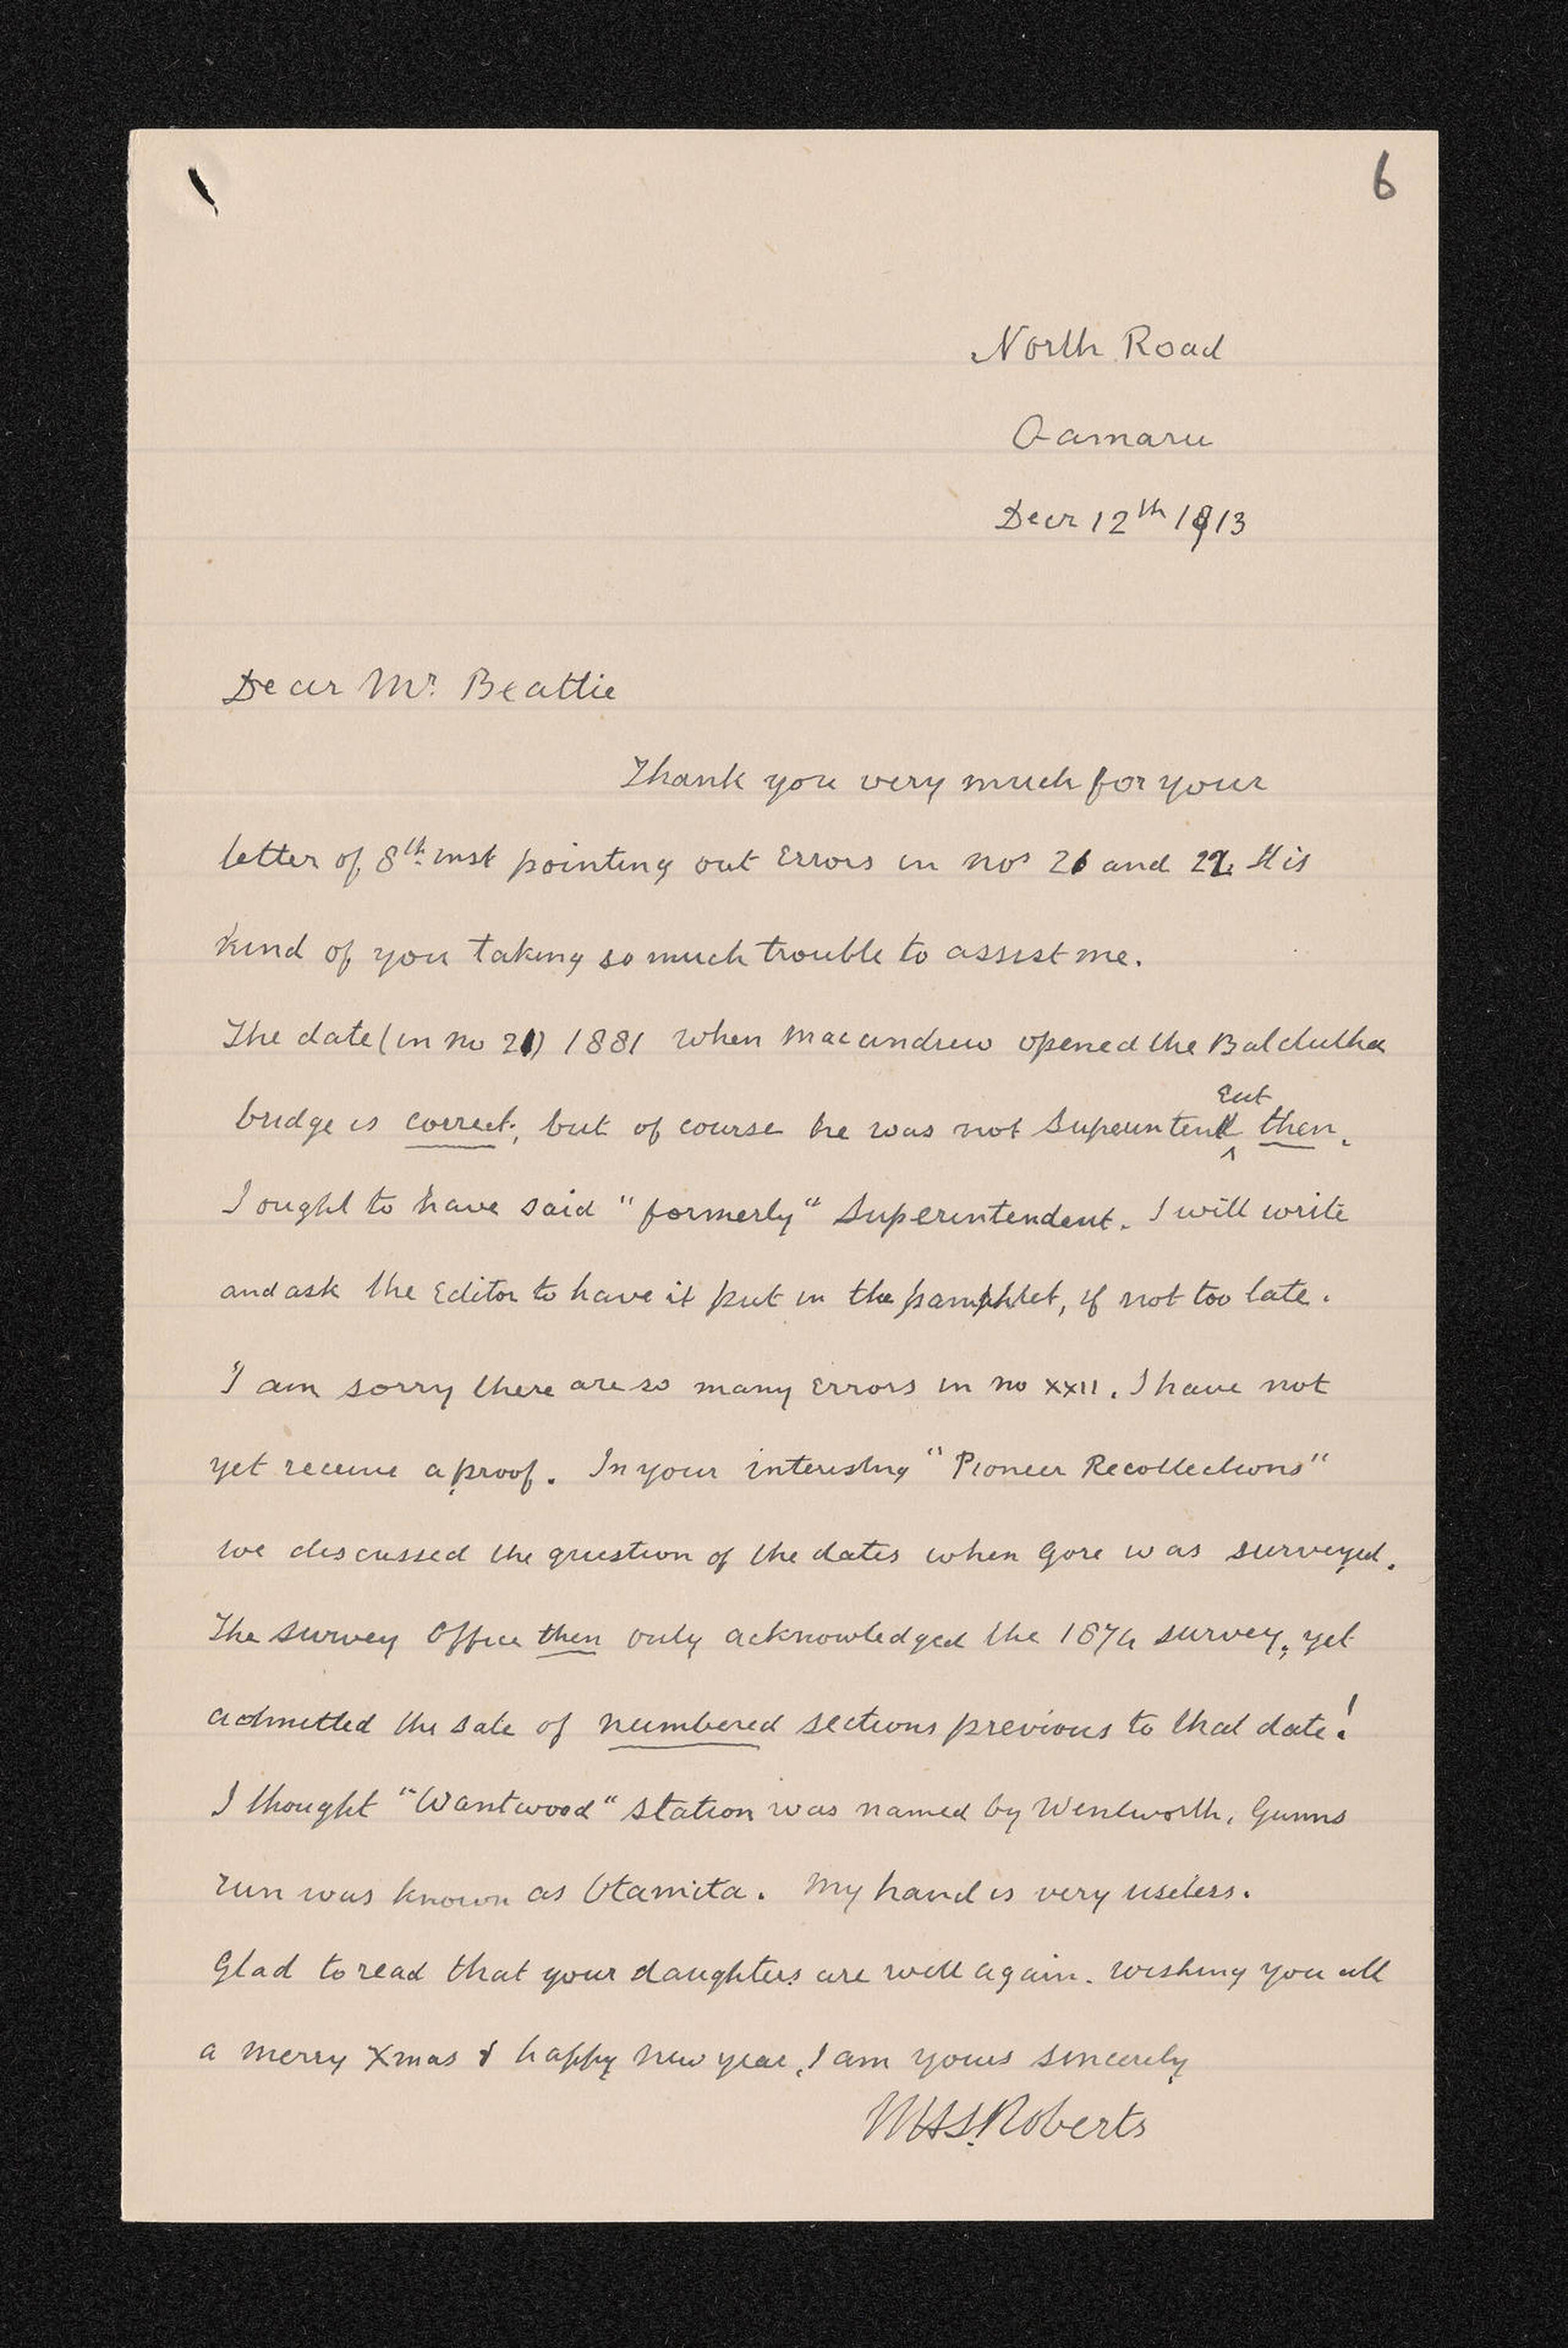 6
North Road
Oamaru
Decr 12th 1913
Dear Mr. Beattie
Thank you very much for your
letter of 8th inst pointing out Errors in nos 21 and 22. It is
kind of you taking so much trouble to assist me.
The date (in no 21) 1881 when Macandrew opened the Balclutha
bridge is correct; but of course he was not Superintendent then.
I ought to have said "formerly" Superintendent. I will write
and ask the Editor to have it put in the pamphlet, if not too late.
I am sorry there are so many Errors in no XXII. I have not
yet receive a proof. In your interesting "Pioneer Recollections"
we discussed the question of the dates when Gore was surveyed.
The survey Office then only acknowledged the 1874 survey, yet
admitted the sale of numbered sections previous to that date!
I thought "Wantwood" station was named by Wentworth, Gunns
run was known as Otamita. My hand is very useless.
Glad to read that your daughters are well again. Wishing you all
a merry Xmas & happy New year, I am yours sincerely
WHS. Roberts